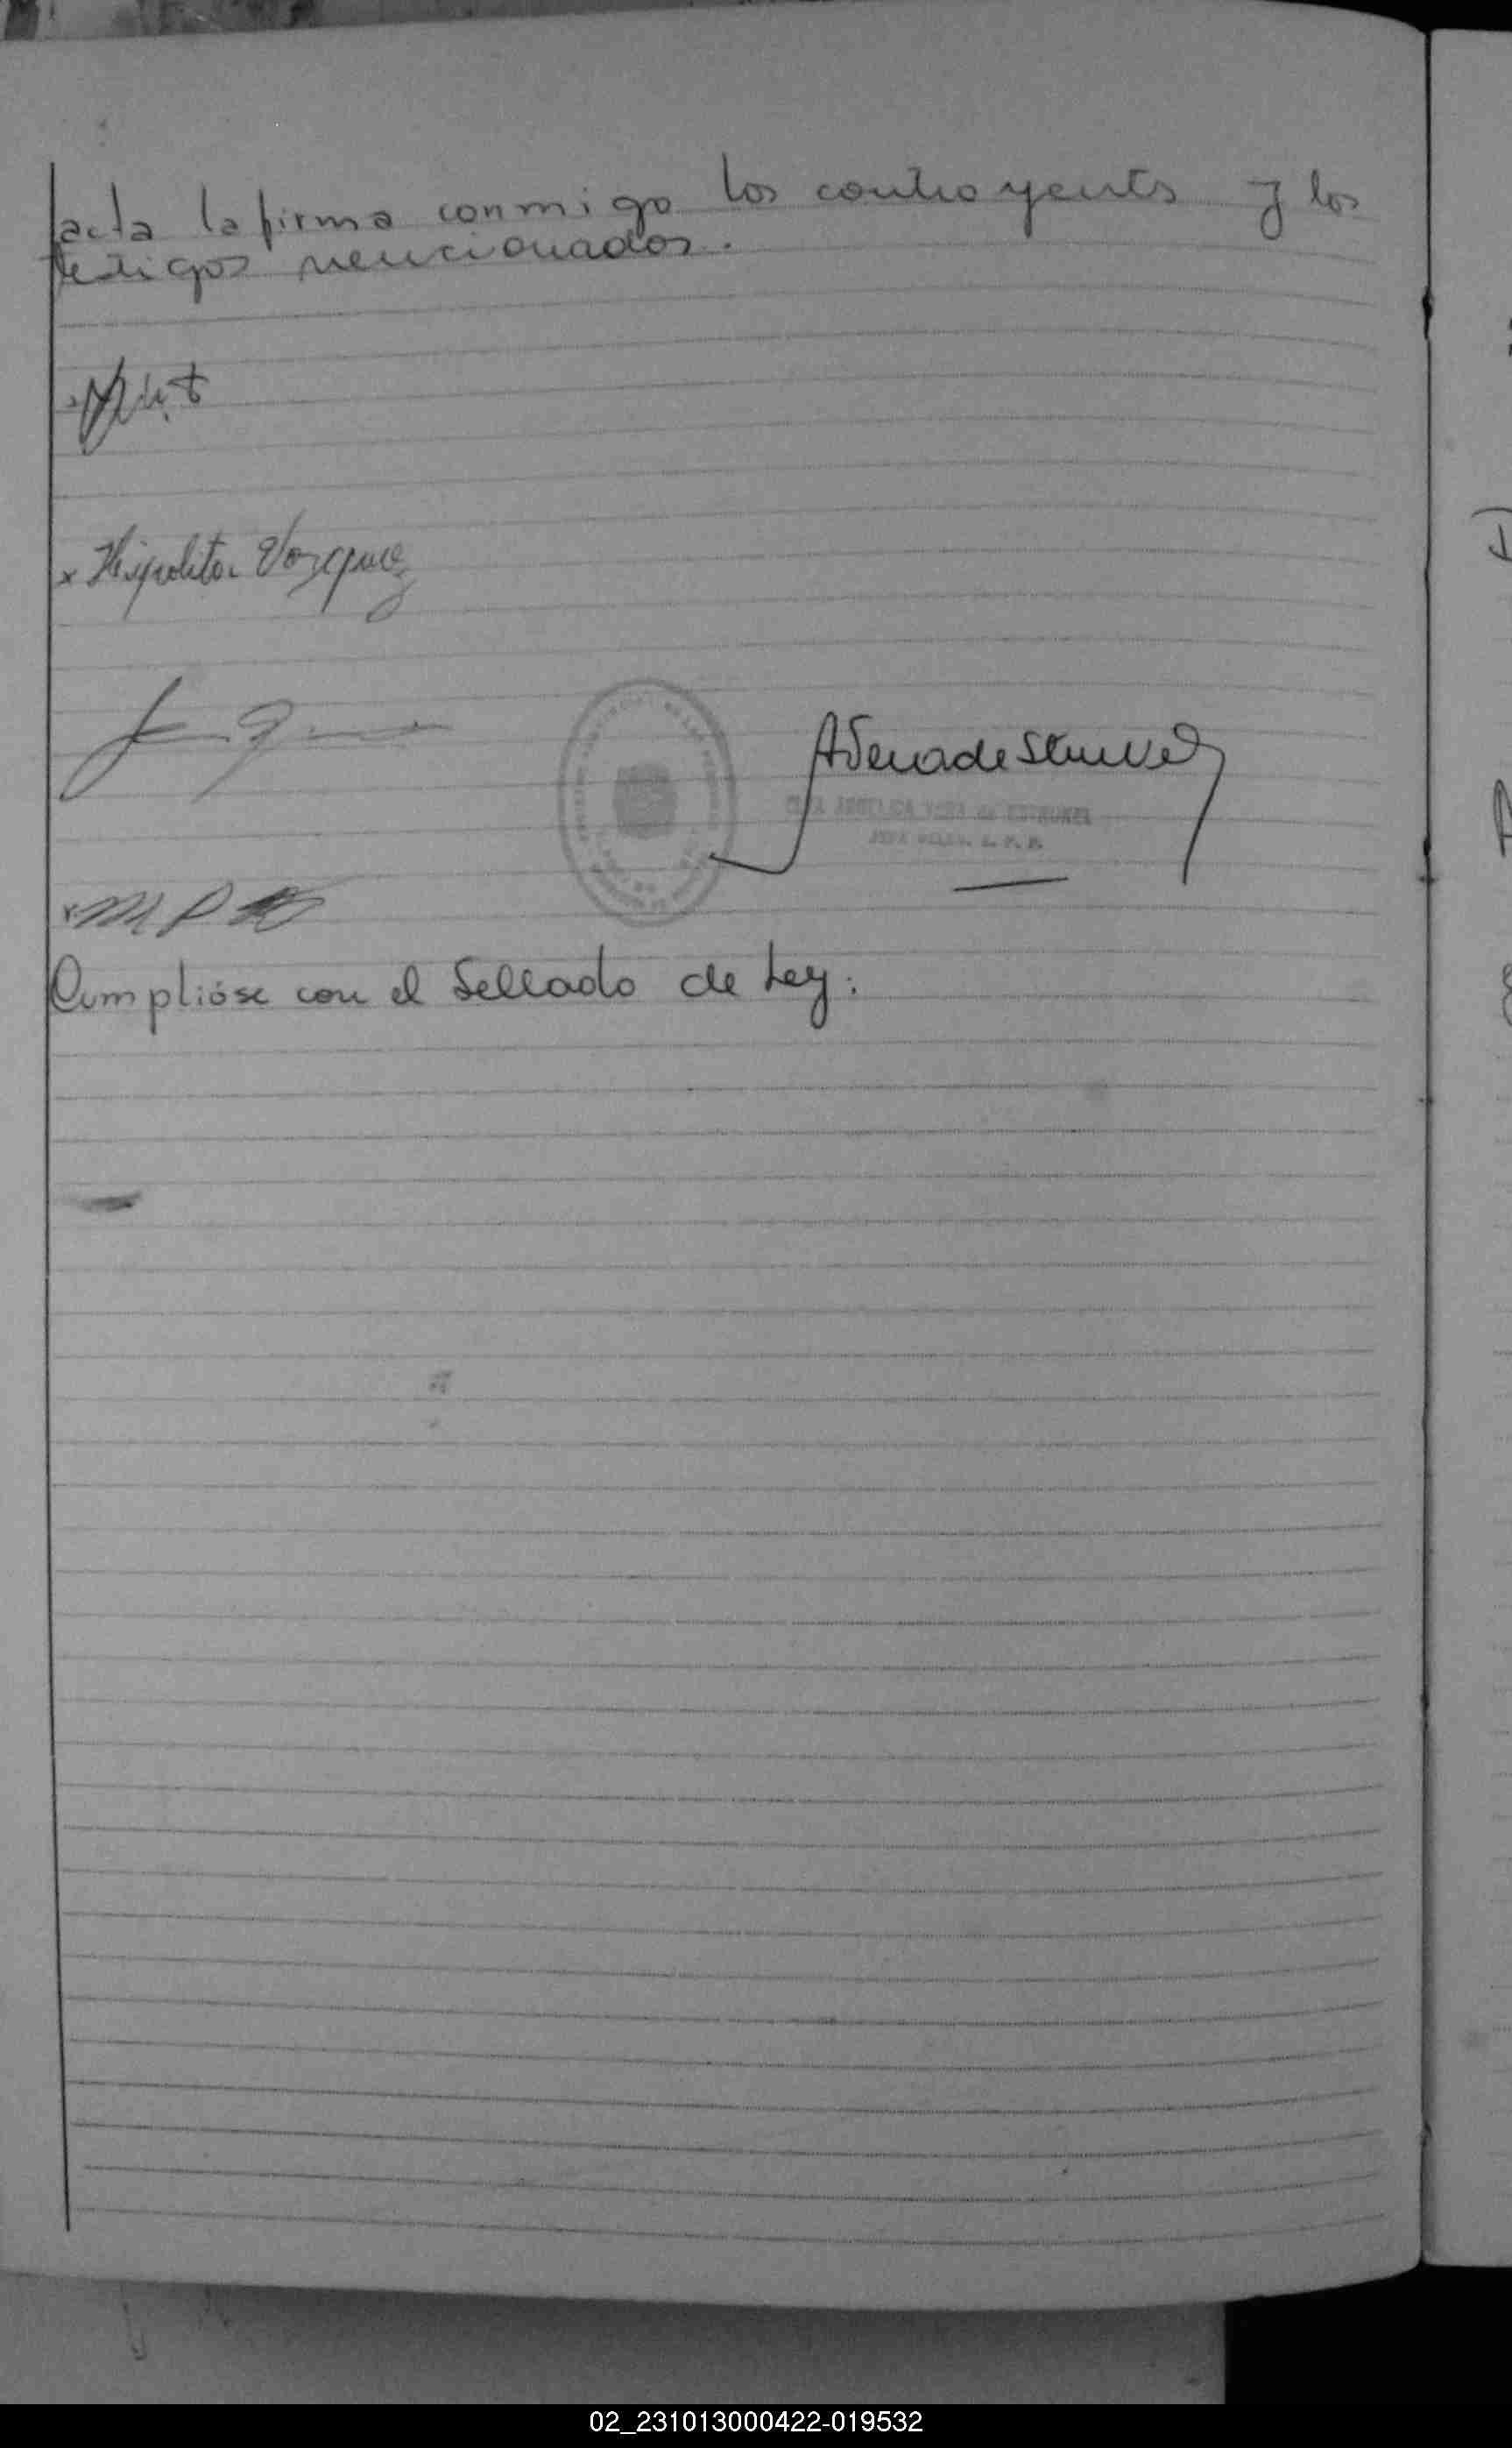 acta la firma conmigo los contrayents y los
testigos mencionados.
x Hipolito Vazquez
AVera de Strurvel
VERA de
Cumplióse con el Sellado de Ley.
02_231013000422-019532